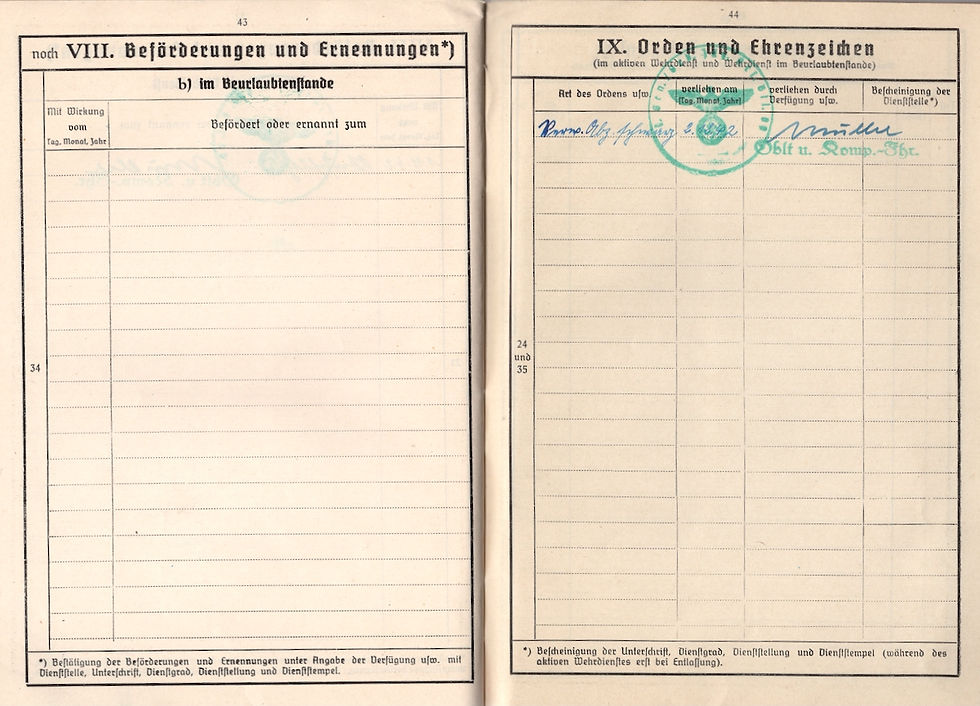 43
noch VIII. Beförderungen und Ernennungen*)
b) im Beurlaubtenstande
Mit Wirkung
vom
Tag, Monat, Jahr
Befördert oder ernannt zum
34
*) Bestätigung der Beförderungen und Ernennungen unter Angabe der Verfügung usw. mit
Dienststelle, Unterschrift, Dienstgrad, Dienststellung und Dienststempel.
44
IX. Orden und Ehrenzeichen
(im aktiven Wehrdienst und Wehrdienst im Beurlaubtenstande)
Art des Ordens usw.
verliehen am
(Tag, Monat, Jahr)
verliehen durch
Verfügung usw.
Bescheinigung der
Dienststelle*)
Verw. Abz. schwarz
Müller
Oblt u. Komp.-Fhr.
24
und
35
*) Bescheinigung der Unterschrift, Dienstgrad, Dienststellung und Dienststempel (während des
aktiven Wehrdienstes erst bei Entlassung).